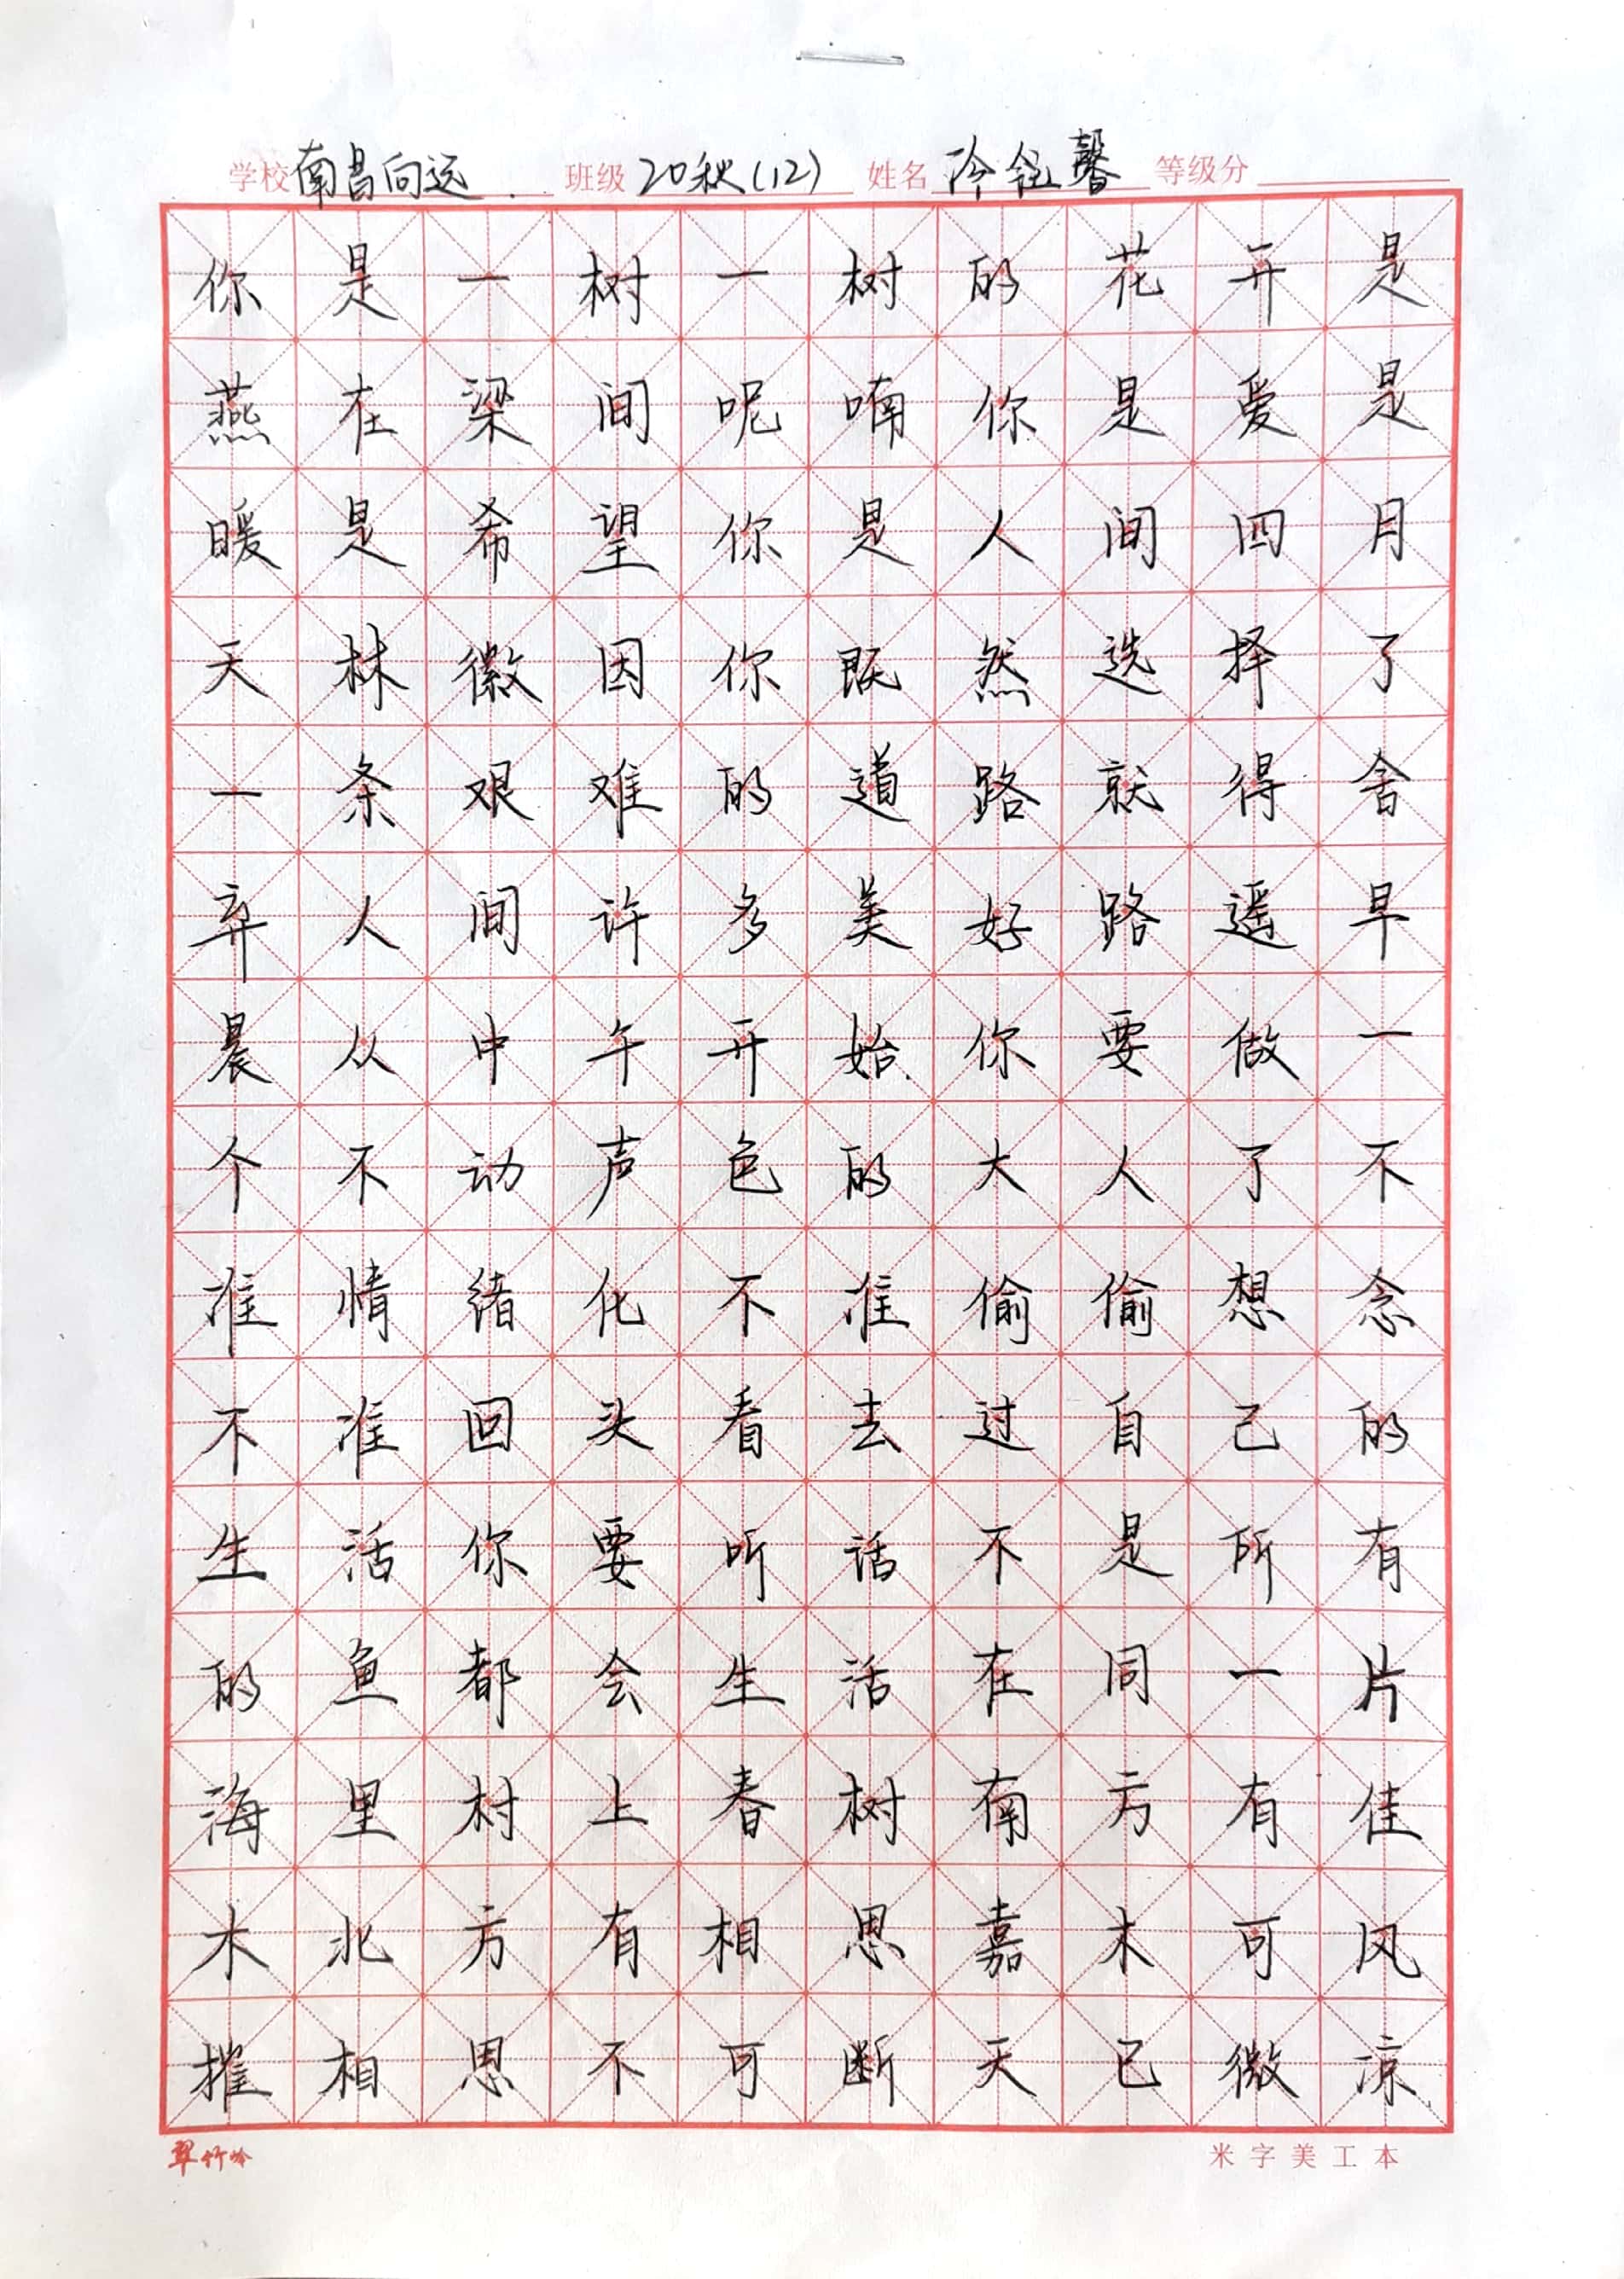 学校 南昌向远 班级 20秋(12) 姓名 冷 馨 等级分
你是一树一树的花开是
燕在梁间呢喃你是爱是
暖是希望你是人间四月
天林徽因你既然选择了
一条艰难的道路就得舍
弃人间许多美好路遥早
晨从中午开始你要做一
个不动声色的大人了不
准情绪化不准偷偷想念
不准回头看去过自己的
生活你要听话不是所有
的鱼都会生活在同一片
海里村上春树南方有佳
木北方有相思嘉木可风
摧相思不可断天已微凉
翠竹岭 米字美工本